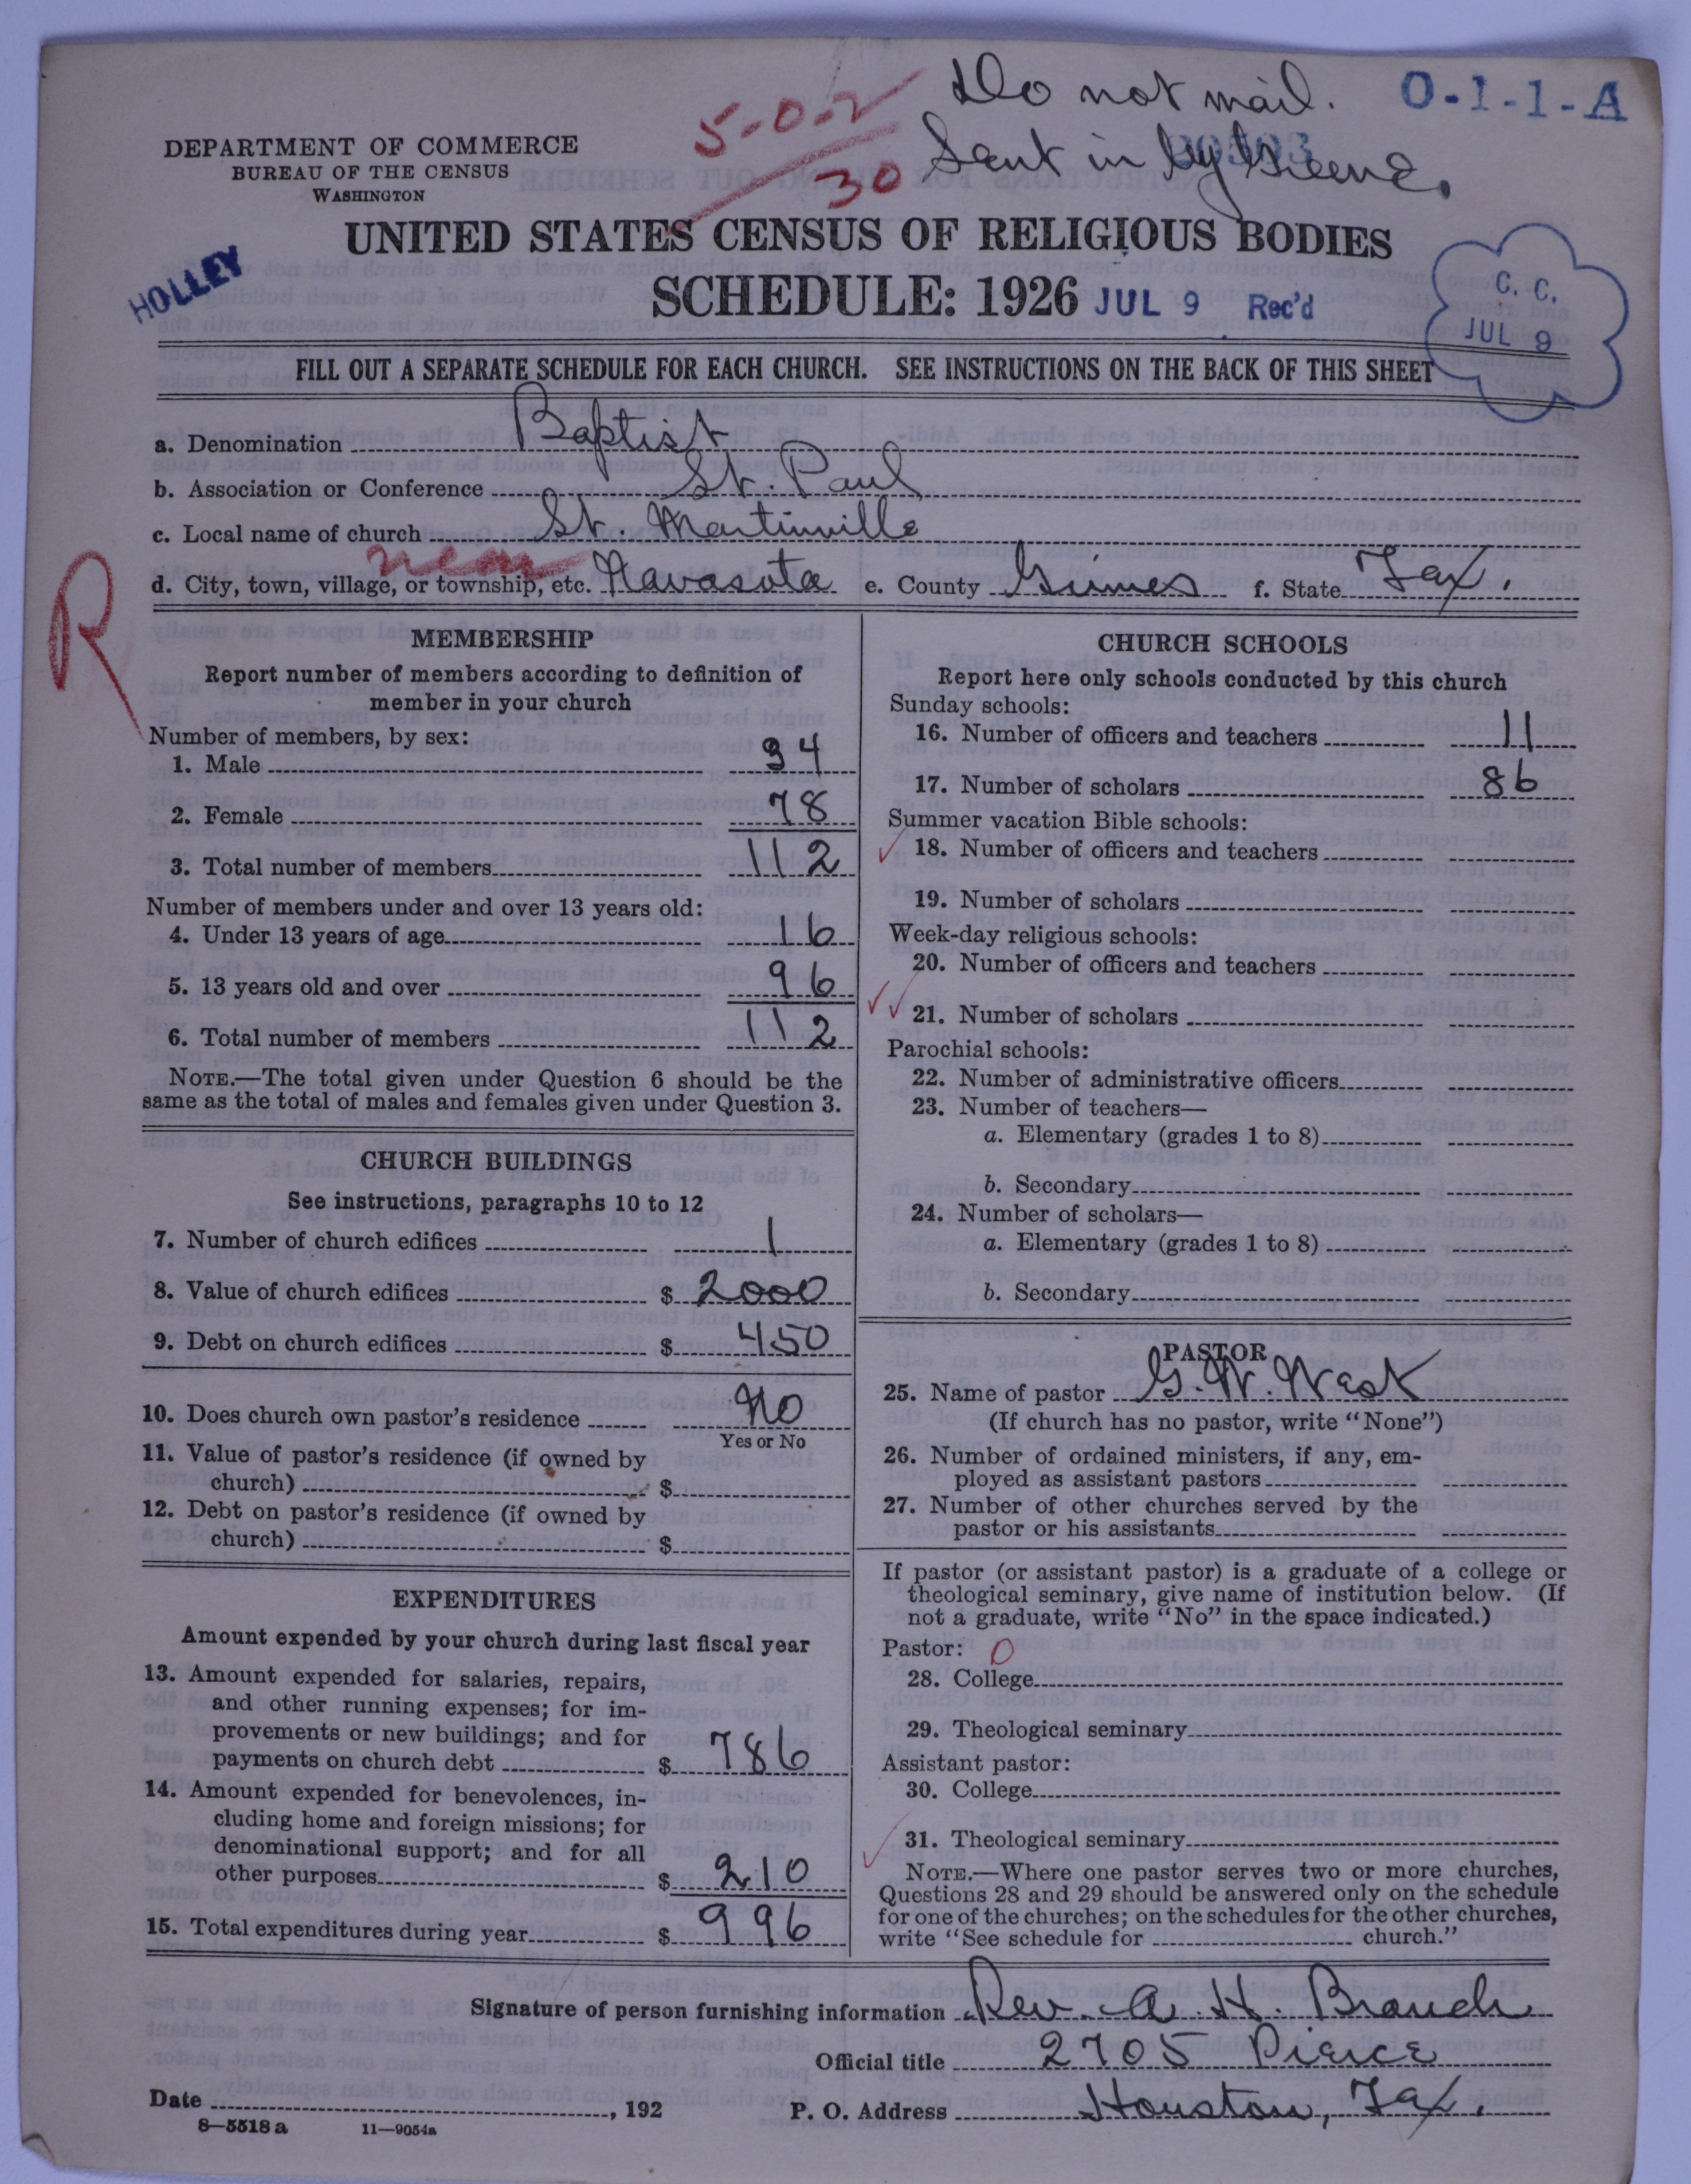 Do not mail. O-1-1-A
5-0-2
30
Sent in by Greene.
DEPARTMENT OF COMMERCE
BUREAU OF THE CENSUS
WASHINGTON
UNITED STATES CENSUS OF RELIGIOUS BODIES
HOLLEY
SCHEDULE: 1926 JUL 9 Rec'd
C. C.
JUL 9
FILL OUT A SEPARATE SCHEDULE FOR EACH CHURCH. SEE INSTRUCTIONS ON THE BACK OF THIS SHEET
a. Denomination Baptist
b. Association or Conference St. Paul
c. Local name of church St. Martinville
R
d. City, town, village, or township, etc. Navasota e. County Grimes f. State Tex.
MEMBERSHIP
Report number of members according to definition of
member in your church
Number of members, by sex:
1. Male 34
2. Female 78
3. Total number of members 112
Number of members under and over 13 years old:
4. Under 13 years of age 16
5. 13 years old and over 96
6. Total number of members 112
NOTE.—The total given under Question 6 should be the
same as the total of males and females given under Question 3.
CHURCH BUILDINGS
See instructions, paragraphs 10 to 12
7. Number of church edifices 1
8. Value of church edifices $ 2000
9. Debt on church edifices $ 450
10. Does church own pastor's residence No
Yes or No
11. Value of pastor's residence (if owned by
church) $
12. Debt on pastor's residence (if owned by
church) $
EXPENDITURES
Amount expended by your church during last fiscal year
13. Amount expended for salaries, repairs,
and other running expenses; for im-
provements or new buildings; and for
payments on church debt $ 786
14. Amount expended for benevolences, in-
cluding home and foreign missions; for
denominational support; and for all
other purposes $ 210
15. Total expenditures during year $ 996
CHURCH SCHOOLS
Report here only schools conducted by this church
Sunday schools:
16. Number of officers and teachers 11
17. Number of scholars 86
Summer vacation Bible schools:
18. Number of officers and teachers
19. Number of scholars
Week-day religious schools:
20. Number of officers and teachers
21. Number of scholars
Parochial schools:
22. Number of administrative officers
23. Number of teachers—
a. Elementary (grades 1 to 8)
b. Secondary
24. Number of scholars—
a. Elementary (grades 1 to 8)
b. Secondary
PASTOR
25. Name of pastor G. W. West
(If church has no pastor, write "None")
26. Number of ordained ministers, if any, em-
ployed as assistant pastors
27. Number of other churches served by the
pastor or his assistants
If pastor (or assistant pastor) is a graduate of a college or
theological seminary, give name of institution below. (If
not a graduate, write "No" in the space indicated.)
Pastor: 0
28. College
29. Theological seminary
Assistant pastor:
30. College
31. Theological seminary
NOTE.—Where one pastor serves two or more churches,
Questions 28 and 29 should be answered only on the schedule
for one of the churches; on the schedules for the other churches,
write "See schedule for church."
Signature of person furnishing information Rev. A. H. Branch
Official title 2705 Pierce
Date , 192 P. O. Address Houston, Tex.
8—5518 a 11—9054a